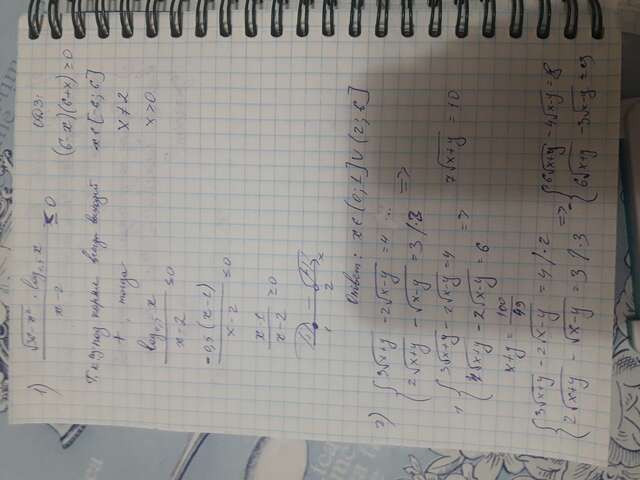 1) √36-x² · log₀,₅ x / x-2 ≤ 0
ОДЗ:
(6-x)(6+x) ≥ 0
x∈[-6;6]
x≠2
x>0
Т.к под корнем всегда
+, тогда
log₀,₅ x / x-2 ≤ 0
-0,5 (x-1) / x-2 ≤ 0
x-1 / x-2 ≥ 0
+ - + x
1 2
Ответ: x∈(0;1]∪(2;6]
2) { 3√x+y - 2√x-y = 4
2√x+y - √x-y = 3 /·2 =>
{ 3√x+y - 2√x-y = 4 =>
4√x+y - 2√x-y = 6
7√x+y = 10
x+y = 100/49
{ 3√x+y - 2√x-y = 4 /·2
2√x+y - √x-y = 3 /·3
=> { 6√x+y - 4√x-y = 8
6√x+y - 3√x-y = 9